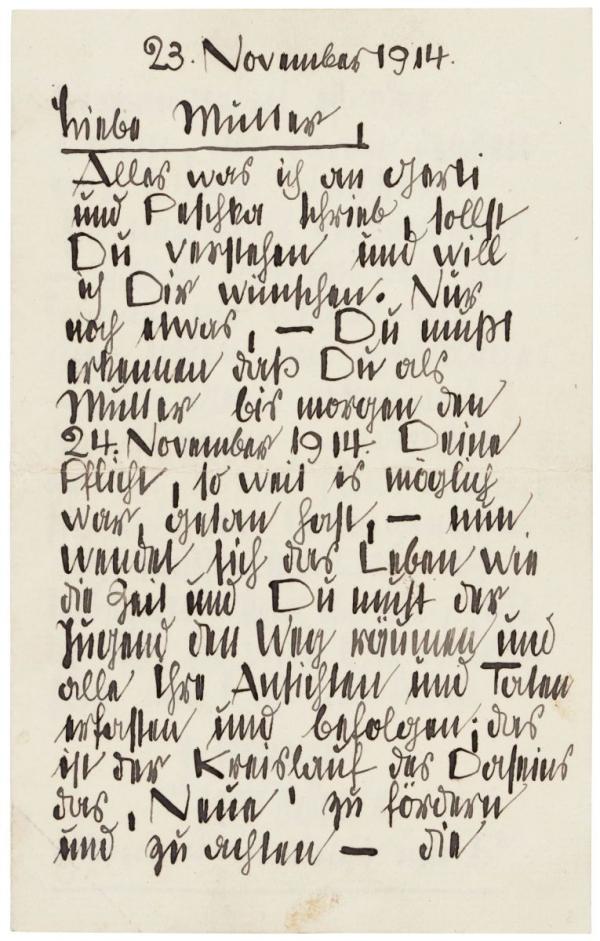 23. November 1914.
Liebe Mutter,
Alles was ich an Gerti
und Peschka schrieb, sollst
Du verstehen und will
ich Dir wünschen. Nur
noch etwas, — Du mußt
erkennen daß Du als
Mutter bis morgen den
24. November 1914. Deine
Pflicht, so weit es möglich
war, getan hast, — nun
wendet sich das Leben wie
die Zeit und Du mußt der
Jugend den Weg räumen und
alle Ihre Ansichten und Taten
erfassen und befolgen; das
ist der Kreislauf des Daseins
das ‚Neue' zu fördern
und zu achten — die